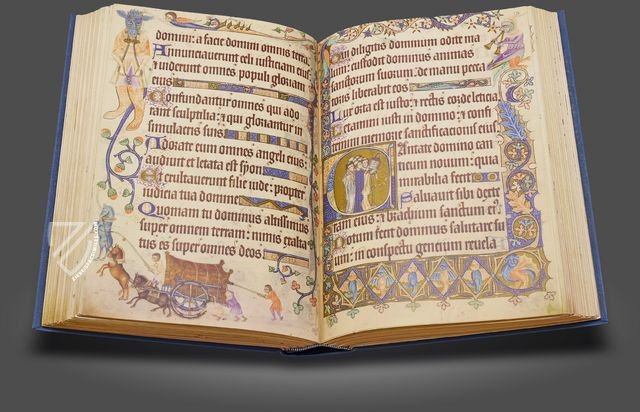 domini: a facie domini omnis terra
Annunciauerunt celi iusticiam eius:
& uiderunt omnes populi gloriam
eius
Confundantur omnes qui ado
rant sculptilia: & qui gloriantur in
simulacris suis
Adorate eum omnes angeli eius:
audiuit et letata est syon
Et exultauerunt filie iude: propter
iudicia tua domine
Quoniam tu dominus altissimus
super omnem terram: nimis exalta
tus es super omnes deos
Qui diligitis dominum odite ma
lum: custodit dominus animas
sanctorum suorum: de manu pecca
toris liberabit eos
Lux orta est iusto: & rectis corde leticia
Letamini iusti in domino: & confi
temini memorie sanctificacionis eius
Cantate domino can
ticum nouum: quia
mirabilia fecit
Saluauit sibi dexte
ra eius: & brachium sanctum eius
Notum fecit dominus salutare su
um: in conspectu gencium reuela